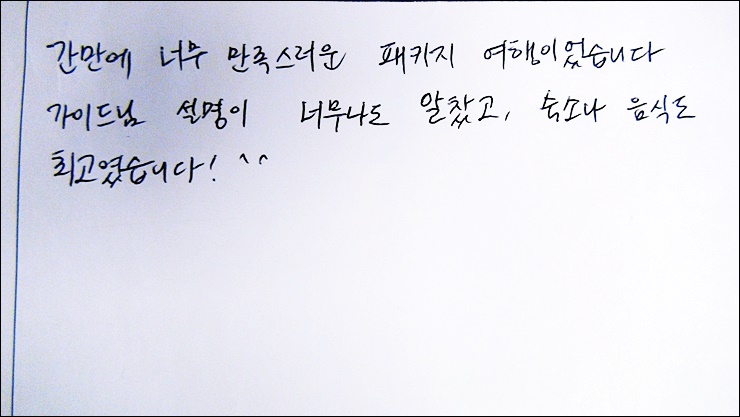 간만에 너무 만족스러운 패키지 여행이었습니다
가이드님 설명이 너무나도 알찼고, 숙소나 음식도
최고였습니다! ^^